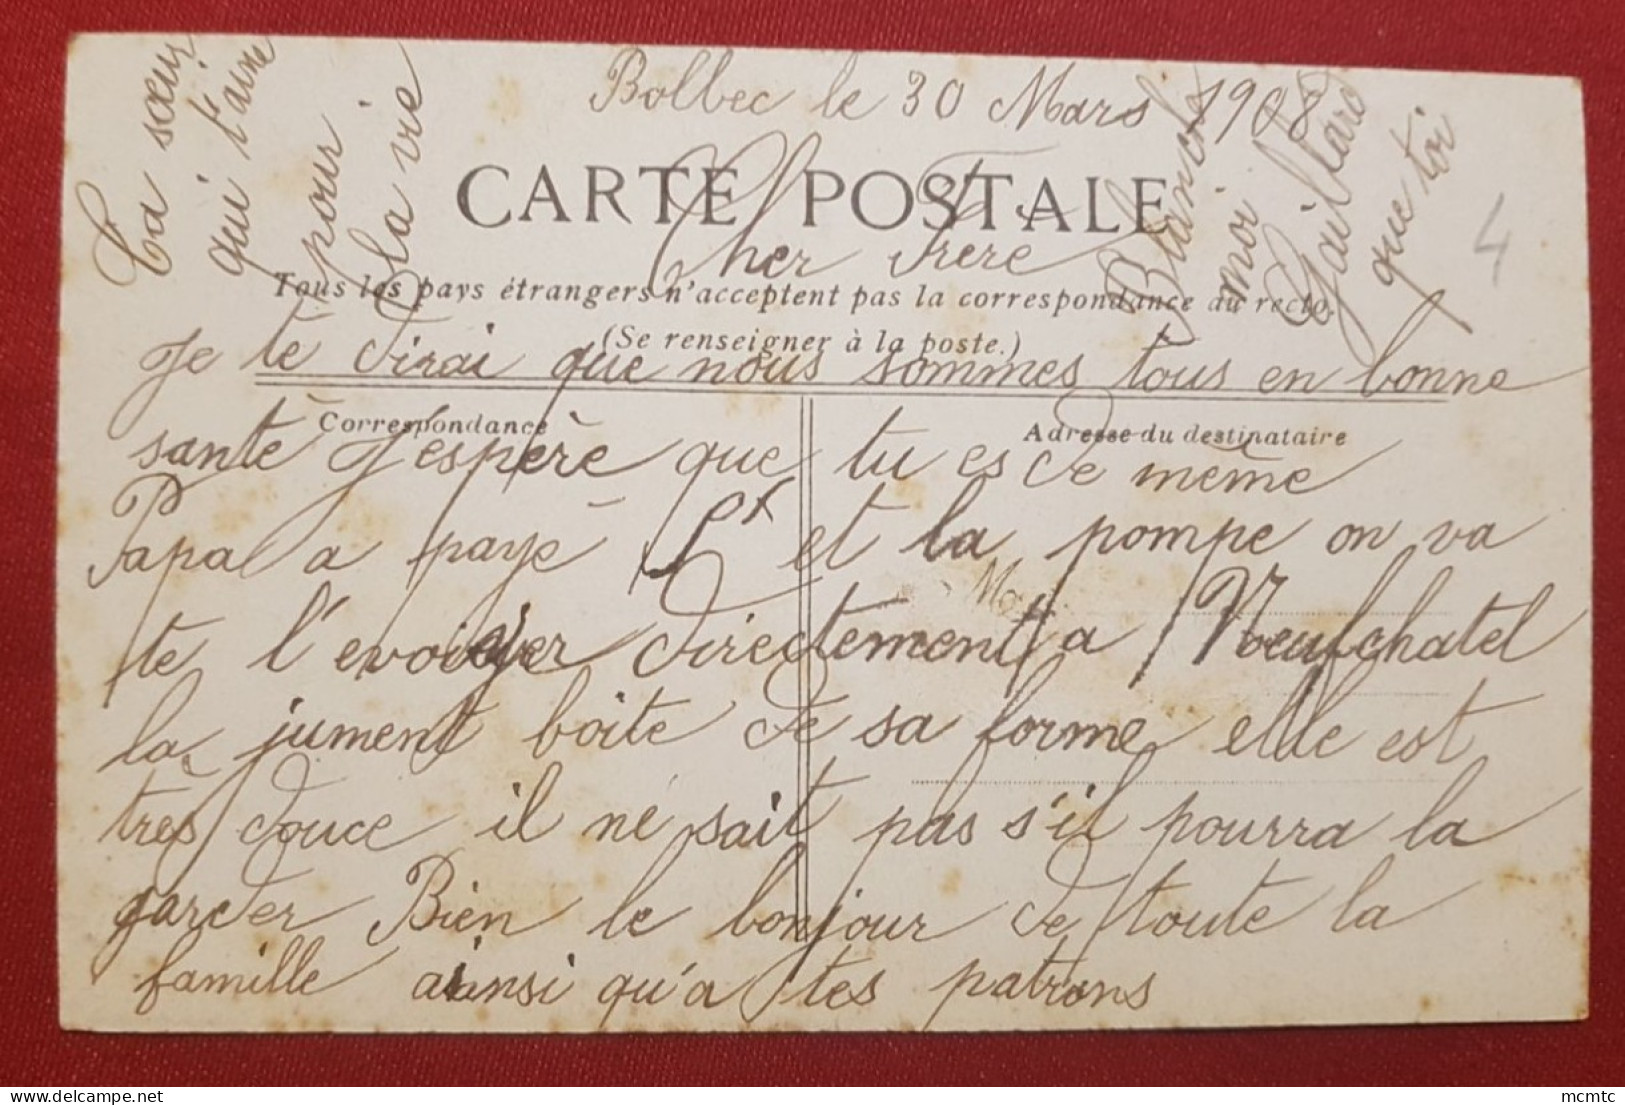 Bolbec le 30 Mars 1908
CARTE POSTALE
Cher Frere
Tous les pays étrangers n'acceptent pas la correspondance au recto.
(Se renseigner à la poste.)
Je te dirai que nous sommes tous en bonne
Correspondance
Adresse du destinataire
santé j'espère que tu es de même
Papa a payé et la pompe on va
te l'evoiyer directement a Neufchatel
la jument boite de sa forme elle est
très douce il ne sait pas s'il pourra la
garder Bien le bonjour de toute la
famille ainsi qu'a tes patrons
Ta sœur
qui t'aime
pour
la vie
Blanche
moi
Gaillard
que toi
4
mcmtc